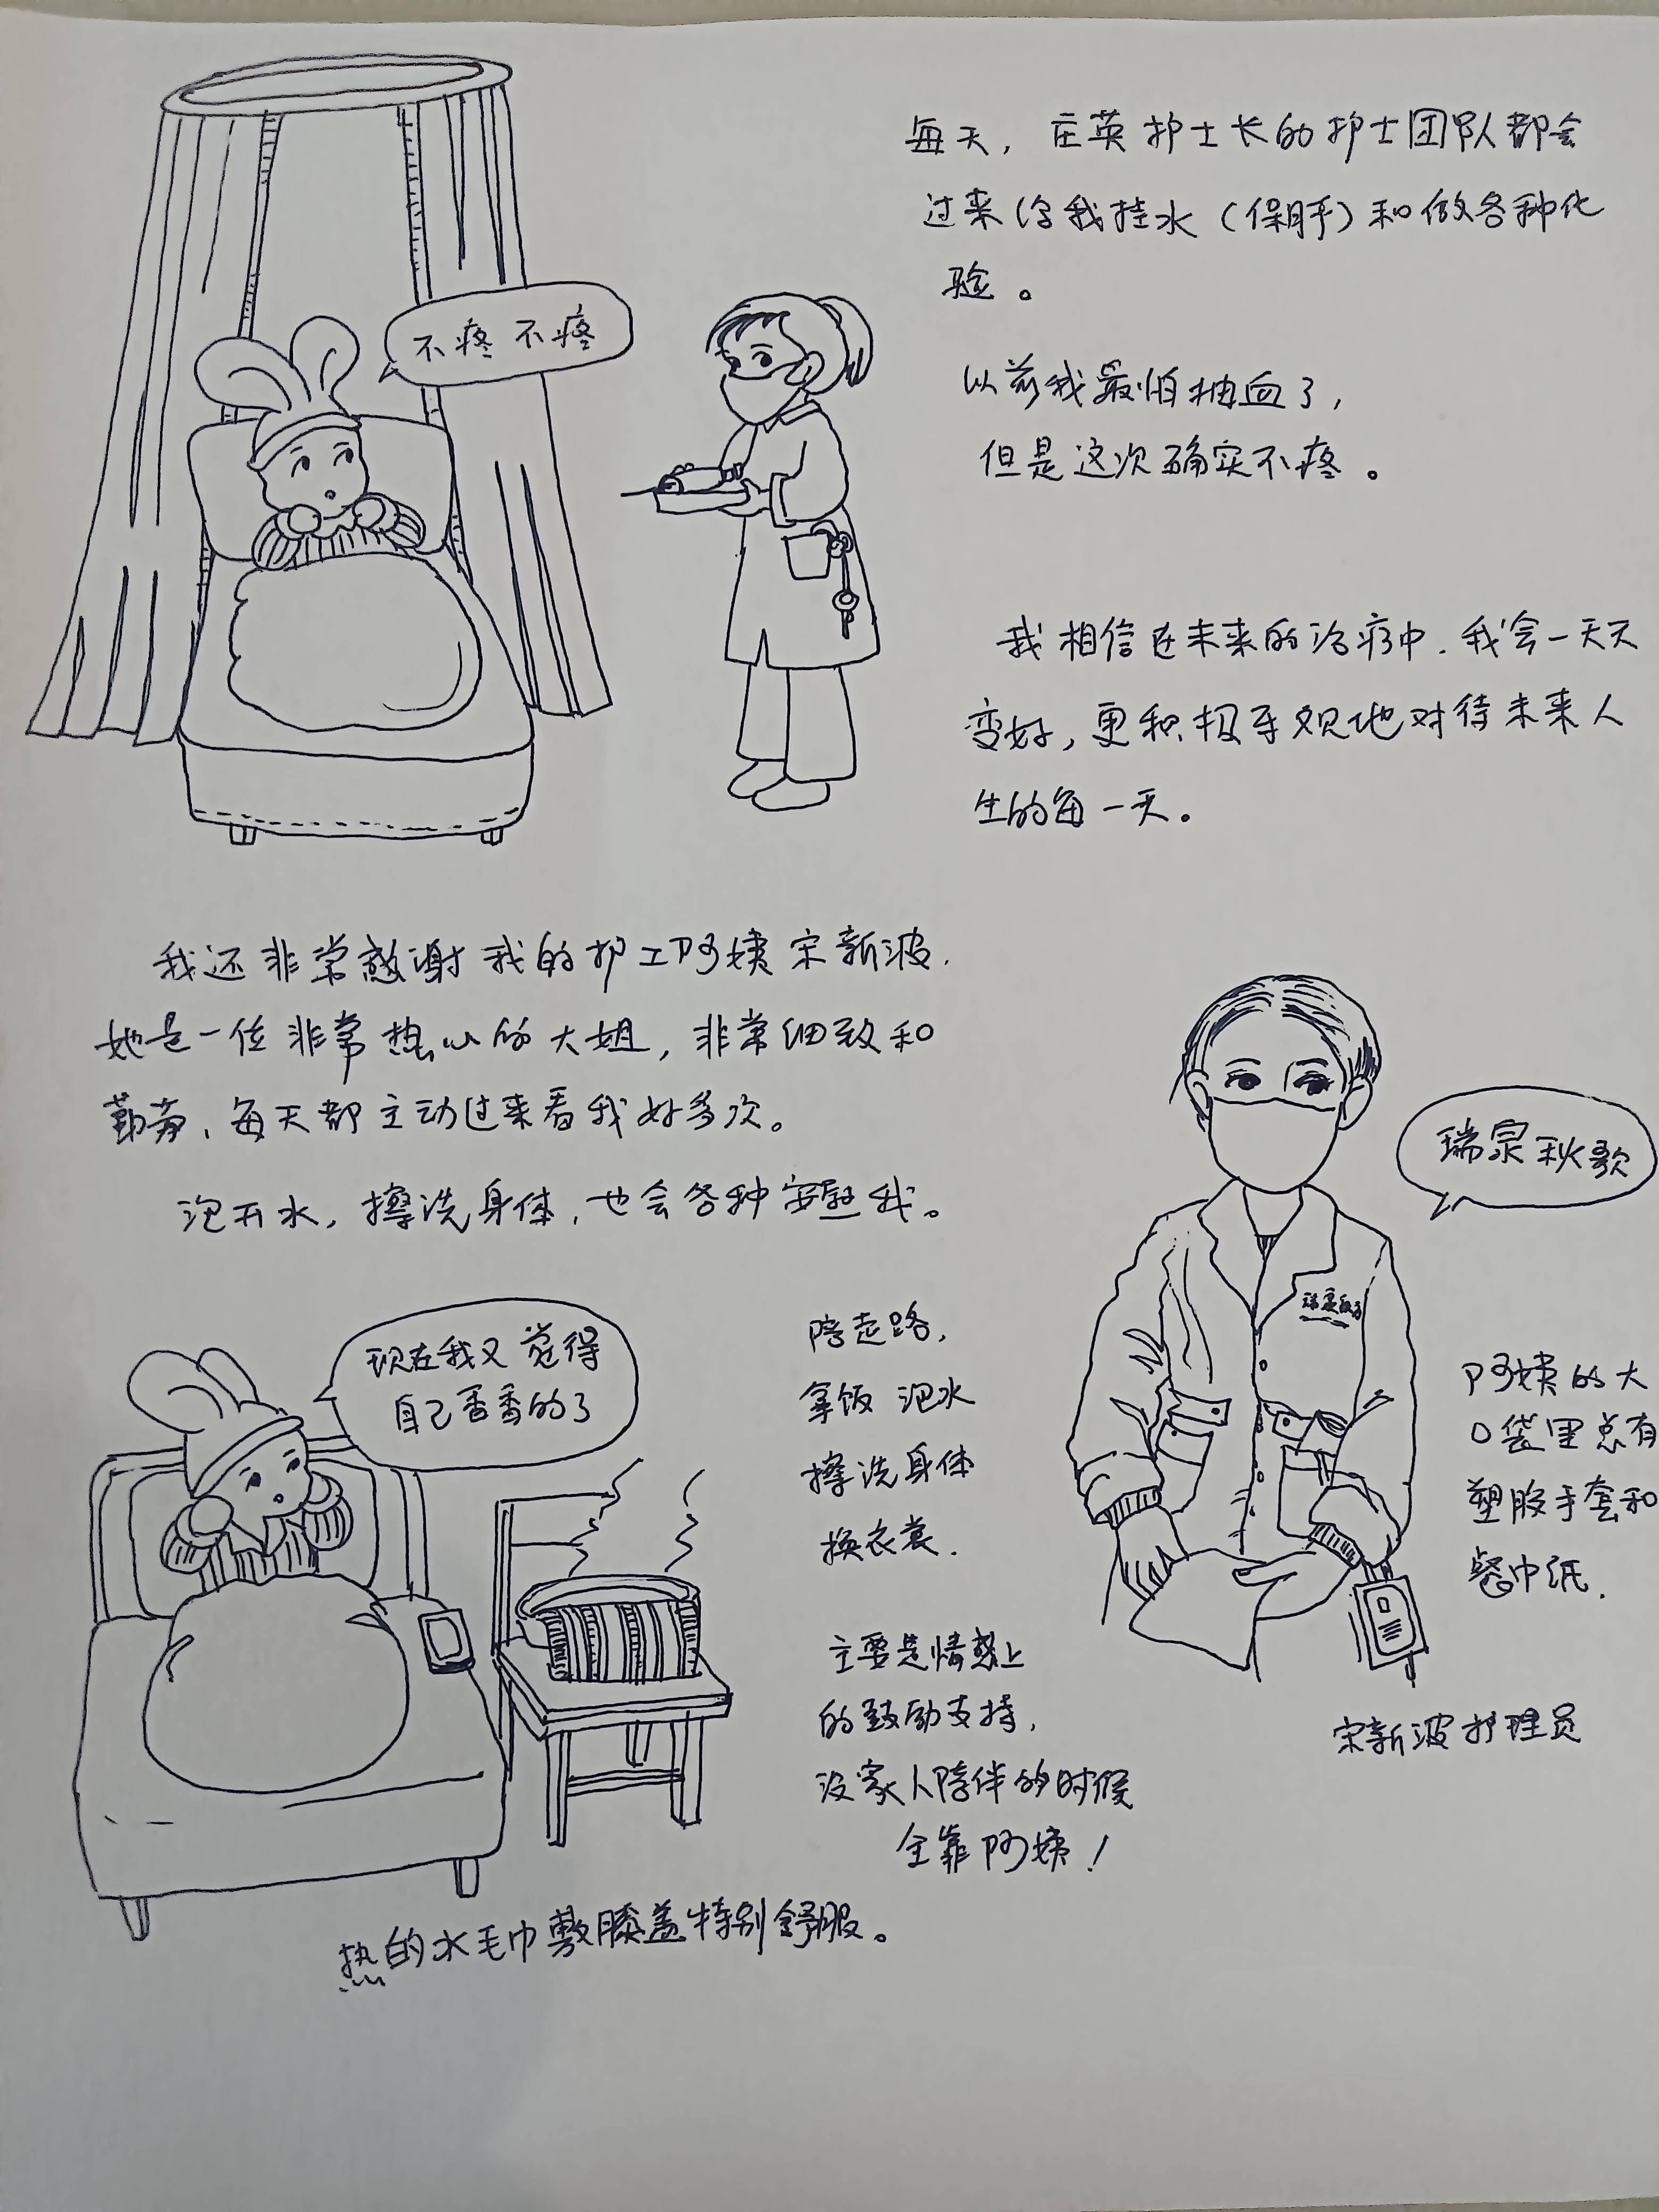 每天，庄英护士长的护士团队都会
过来给我挂水（保肝）和做各种化
验。
不疼 不疼
以前我最怕抽血了，
但是这次确实不疼。
我相信在未来的治疗中.我会一天天
变好，更积极乐观地对待未来人
生的每一天。
我还非常感谢我的护工阿姨宋新波.
她是一位非常热心的大姐，非常细致和
勤劳、每天都主动过来看我好多次。
泡开水，擦洗身体，也会各种安慰我。
瑞泉秋歌
现在我又觉得
自己香香的了
陪走路，
拿饭 泡水
擦洗身体
换衣裳.
阿姨的大
口袋里总有
塑胶手套和
餐巾纸.
主要是情感上
的鼓励支持，
没家人陪伴的时候
全靠阿姨！
宋新波护理员
热的水毛巾敷膝盖特别舒服。